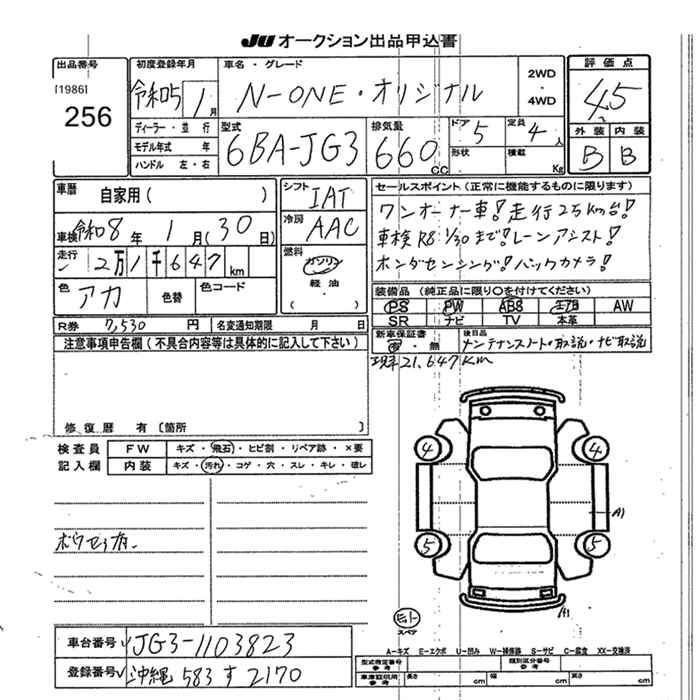 JU オークション出品申込書
出品番号
[1986]
256
初度登録年月
令和5 1月
車名・グレード
N-ONE・オリジナル
2WD
・
4WD
評価点
4.5
外装 内装
B B
ディーラー・並行
モデル年式 年
ハンドル 左・右
型式
6BA-JG3
排気量
660 cc
ドア 5
定員 4人
形状
積載 Kg
車歴
自家用( )
車検 令和8年 1月(30日)
走行
2万1千647km
色 アカ
色替
色コード
シフト
IAT
冷房
AAC
燃料
ガソリン
軽油
( )
セールスポイント(正常に機能するものに限ります)
ワンオーナー車!走行25km台!
車検R8 1/30まで!レーンアシスト!
ホンダセンシング!バックカメラ!
装備品(純正品に限り○を付けてください)
PS PW ABS エアB AW
SR ナビ TV 本革
R券 7,530円
名変通知期限 月 日
新車保証書
有・無
後日品
メンテナンスノート・取説・ナビ取説
注意事項申告欄(不具合内容等は具体的に記入して下さい)
現車21,647km
修復歴 有〔箇所 〕
検査員
記入欄
FW キズ・飛石・ヒビ割・リペア跡・×要
内装 キズ・汚れ・コゲ・穴・スレ・キレ・破レ
4 4
A1
5 5
A1
スペア
A-キズ E-エクボ U-凹み W-補修跡 S-サビ C-腐食 XX-交換済
車台番号 JG3-1103823
登録番号 沖縄 583 す 2170
型式指定番号
参考
類別区分番号
参考
車庫証明用
参考
長さ cm 幅 cm 高さ cm